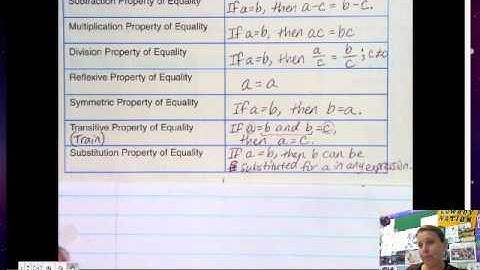 Subtraction Property of Equality If a=b, then a-c = b-c.
Multiplication Property of Equality If a=b, then ac = bc
Division Property of Equality If a=b, then a/c = b/c; c≠0
Reflexive Property of Equality a = a
Symmetric Property of Equality If a=b, then b=a.
Transitive Property of Equality If a=b and b=c,
(Train) then a=c.
Substitution Property of Equality If a=b, then b can be
substituted for a in any expression.
COWBOY
NATION